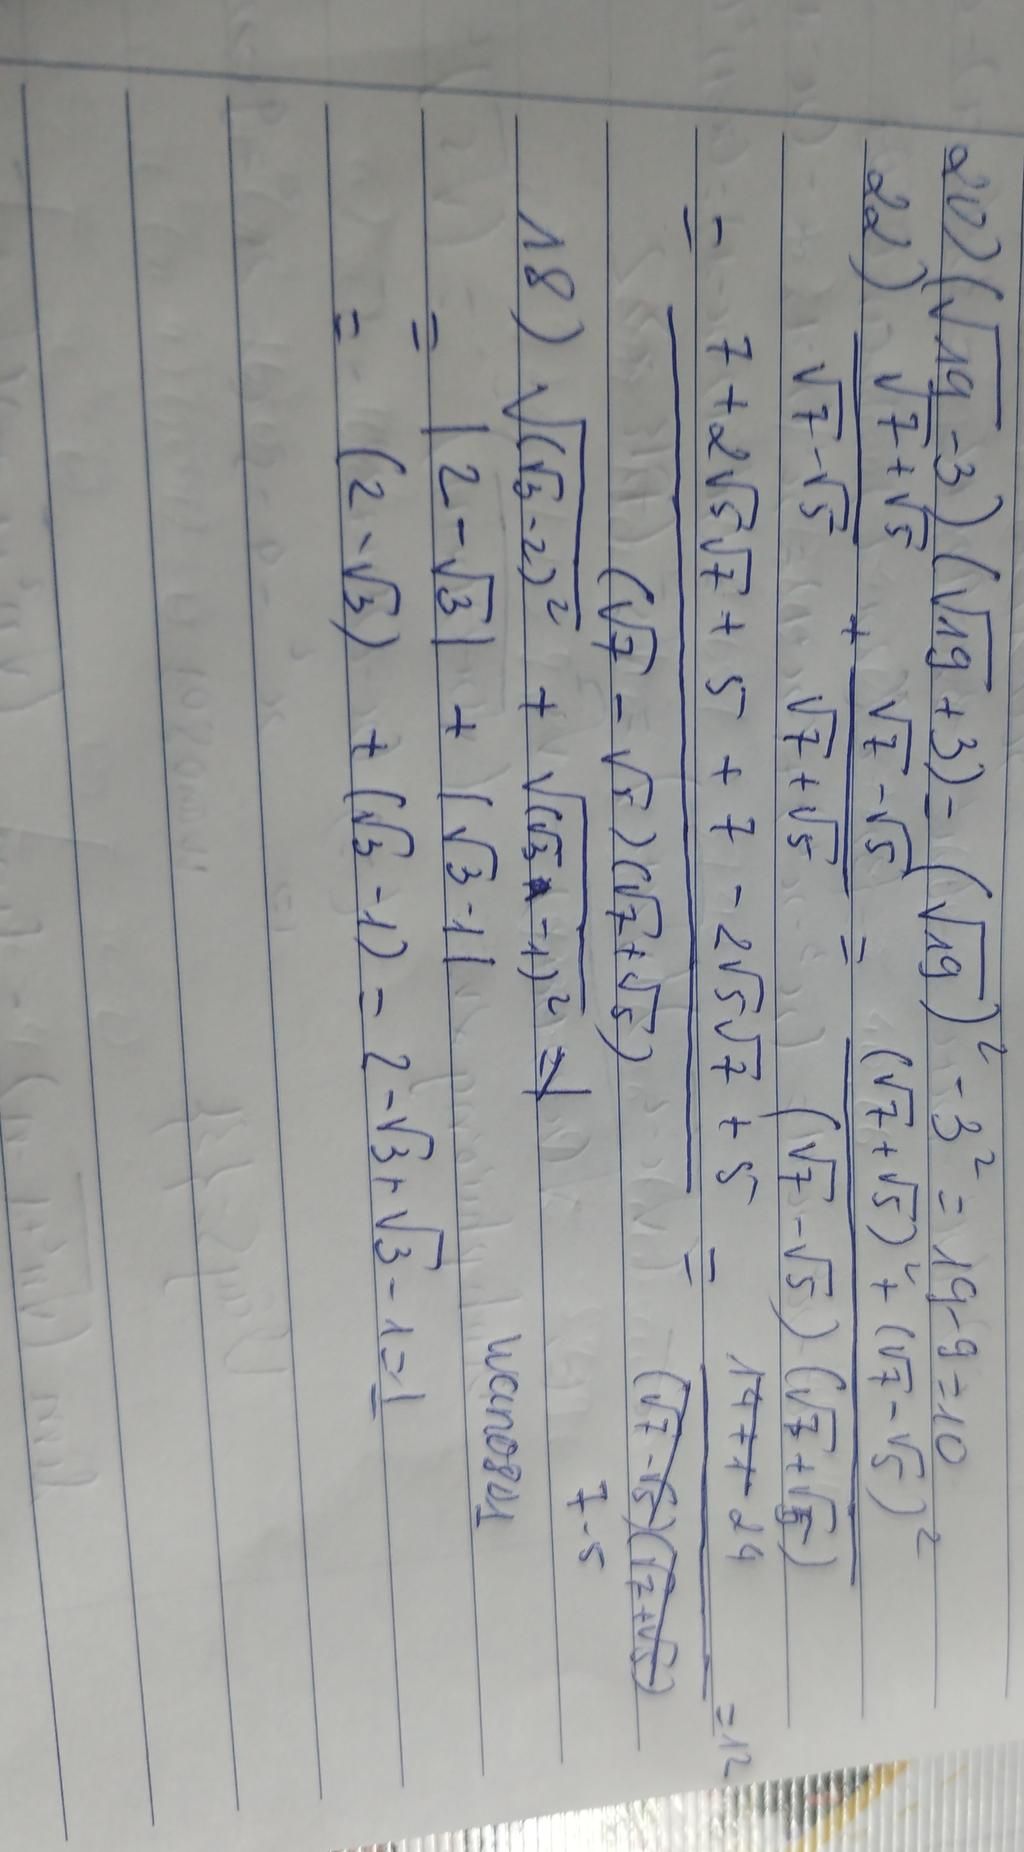 20) (√19 - 3) (√19 + 3) = (√19)² - 3² = 19 - 9 = 10
22) (√7 + √5)/(√7 - √5) + (√7 - √5)/(√7 + √5) = ((√7 + √5)² + (√7 - √5)²)/((√7 - √5) (√7 + √5))
= (7 + 2√5√7 + 5 + 7 - 2√5√7 + 5)/((√7 - √5) (√7 + √5)) = 24/(7 - 5) = 12
18) √(√3 - 2)² + √(√3 - 1)² =
= |2 - √3| + |√3 - 1|
= (2 - √3) + (√3 - 1) = 2 - √3 + √3 - 1 = 1